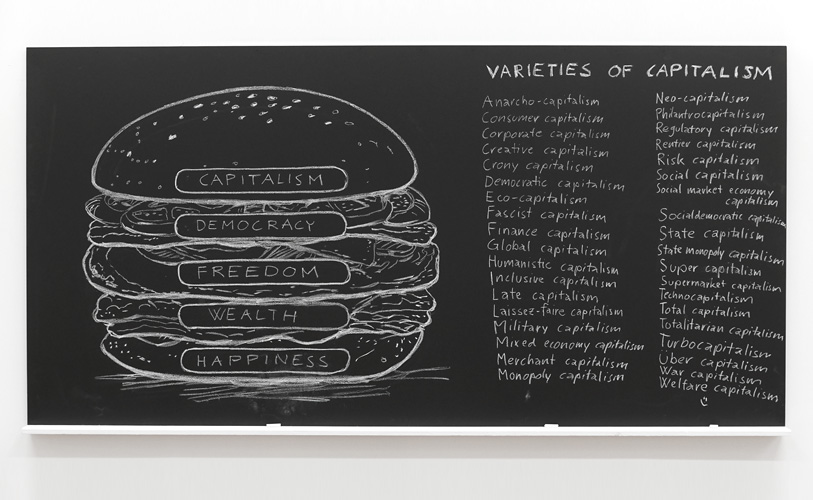 CAPITALISM
DEMOCRACY
FREEDOM
WEALTH
HAPPINESS
VARIETIES OF CAPITALISM
Anarcho-capitalism
Consumer capitalism
Corporate capitalism
Creative capitalism
Crony capitalism
Democratic capitalism
Eco-capitalism
Fascist capitalism
Finance capitalism
Global capitalism
Humanistic capitalism
Inclusive capitalism
Late capitalism
Laissez-faire capitalism
Military capitalism
Mixed economy capitalism
Merchant capitalism
Monopoly capitalism
Neo-capitalism
Philantrocapitalism
Regulatory capitalism
Rentier capitalism
Risk capitalism
Social capitalism
Social market economy
capitalism
Socialdemocratic capitalism
State capitalism
State monopoly capitalism
Super capitalism
Supermarket capitalism
Technocapitalism
Total capitalism
Totalitarian capitalism
Turbocapitalism
Über capitalism
War capitalism
Welfare capitalism